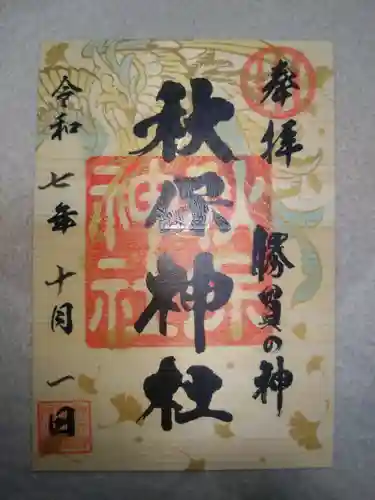 奉拝
勝負の神
秋保神社
秋保神社
令和七年十月一日